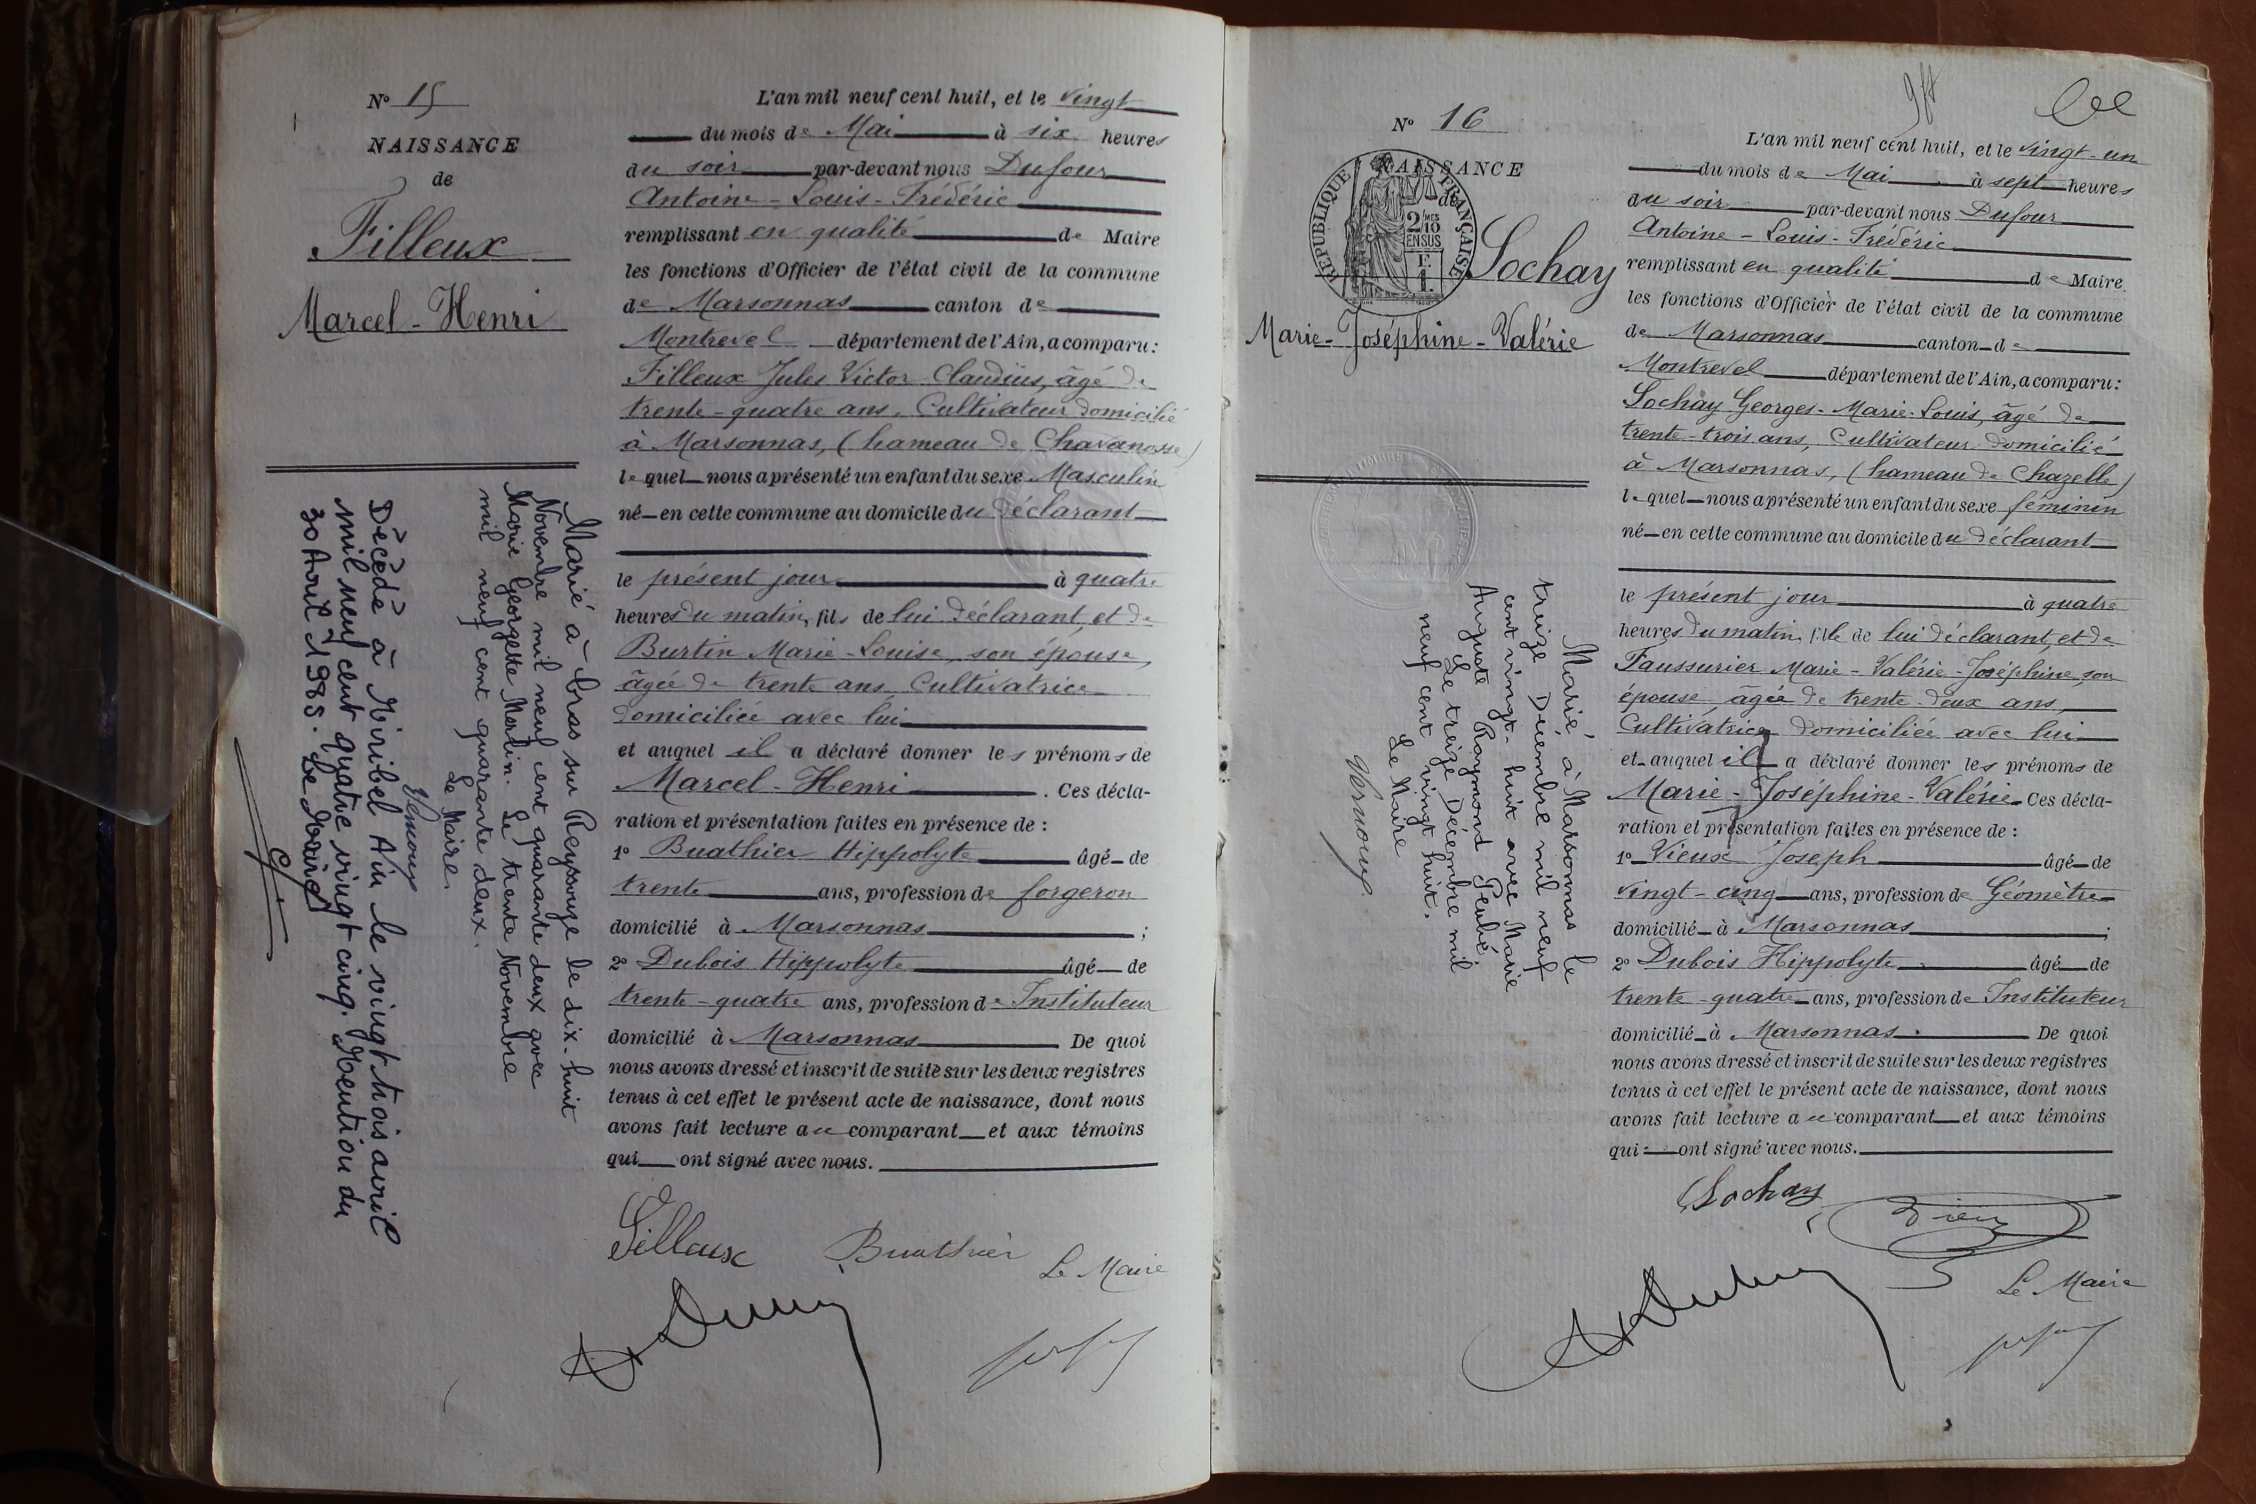 N° 15
NAISSANCE
de
Filleux
Marcel-Henri
L'an mil neuf cent huit, et le vingt
du mois de Mai à six heures
du soir par-devant nous Dufour
Antoine-Louis-Frédéric
remplissant en qualité de Maire
les fonctions d'Officier de l'état civil de la commune
de Marsonnas canton de
Montrevel département de l'Ain, a comparu:
Filleux Jules Victor Claudius, âgé de
trente-quatre ans, Cultivateur domicilié
à Marsonnas, (hameau de Chavanosse)
lequel nous a présenté un enfant du sexe Masculin
né en cette commune au domicile du déclarant
le présent jour à quatre
heures du matin, fils de lui déclarant, et de
Burtin Marie-Louise, son épouse,
âgée de trente ans, Cultivatrice
domiciliée avec lui
et auquel il a déclaré donner les prénoms de
Marcel-Henri. Ces décla-
ration et présentation faites en présence de :
1° Buathier Hippolyte âgé de
trente ans, profession de forgeron
domicilié à Marsonnas ;
2° Dubois Hippolyte âgé de
trente-quatre ans, profession de Instituteur
domicilié à Marsonnas De quoi
nous avons dressé et inscrit de suite sur les deux registres
tenus à cet effet le présent acte de naissance, dont nous
avons fait lecture au comparant et aux témoins
qui ont signé avec nous.
Filleux Buathier Le Maire
Marié à bras sur Reyssouze le dix-huit
Novembre mil neuf cent quarante deux avec
Marie Georgette Merlin. Le trente Novembre
mil neuf cent quarante deux.
Le Maire.
Vernoux
Décédé à Miribel Ain le vingt trois avril
mil neuf cent quatre vingt cinq. Mention du
30 Avril 1985. Le Maire
N° 16
NAISSANCE
de
RÉPUBLIQUE FRANÇAISE
2/10 EN SUS
Sochay
Marie-Joséphine-Valérie
L'an mil neuf cent huit, et le vingt-un
du mois de Mai à sept heures
du soir par-devant nous Dufour
Antoine-Louis-Frédéric
remplissant en qualité de Maire
les fonctions d'Officier de l'état civil de la commune
de Marsonnas canton de
Montrevel département de l'Ain, a comparu:
Sochay Georges-Marie-Louis, âgé de
trente-trois ans, Cultivateur domicilié
à Marsonnas, (hameau de Chazelle)
lequel nous a présenté un enfant du sexe féminin
né en cette commune au domicile du déclarant
le présent jour à quatre
heures du matin fille de lui déclarant, et de
Faussurier Marie-Valérie-Joséphine, son
épouse, âgée de trente-deux ans,
Cultivatrice domiciliée avec lui
et auquel il a déclaré donner les prénoms de
Marie-Joséphine-Valérie Ces décla-
ration et présentation faites en présence de :
1° Vieux Joseph âgé de
vingt-cinq ans, profession de Géomètre
domicilié à Marsonnas ;
2° Dubois Hippolyte âgé de
trente-quatre ans, profession de Instituteur
domicilié à Marsonnas. De quoi
nous avons dressé et inscrit de suite sur les deux registres
tenus à cet effet le présent acte de naissance, dont nous
avons fait lecture au comparant et aux témoins
qui ont signé avec nous.
Sochay Vieux
Le Maire
Marié à Marsonnas le
treize Décembre mil neuf
cent vingt-huit avec Marie
Auguste Raymond
Le treize Décembre mil
neuf cent vingt huit.
Le Maire
Vernoux